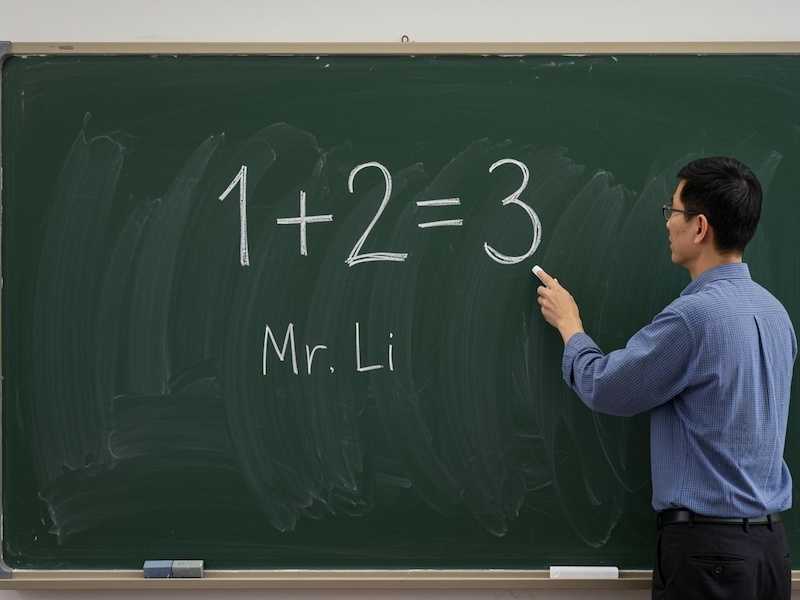 1+2=3
Mr. Li